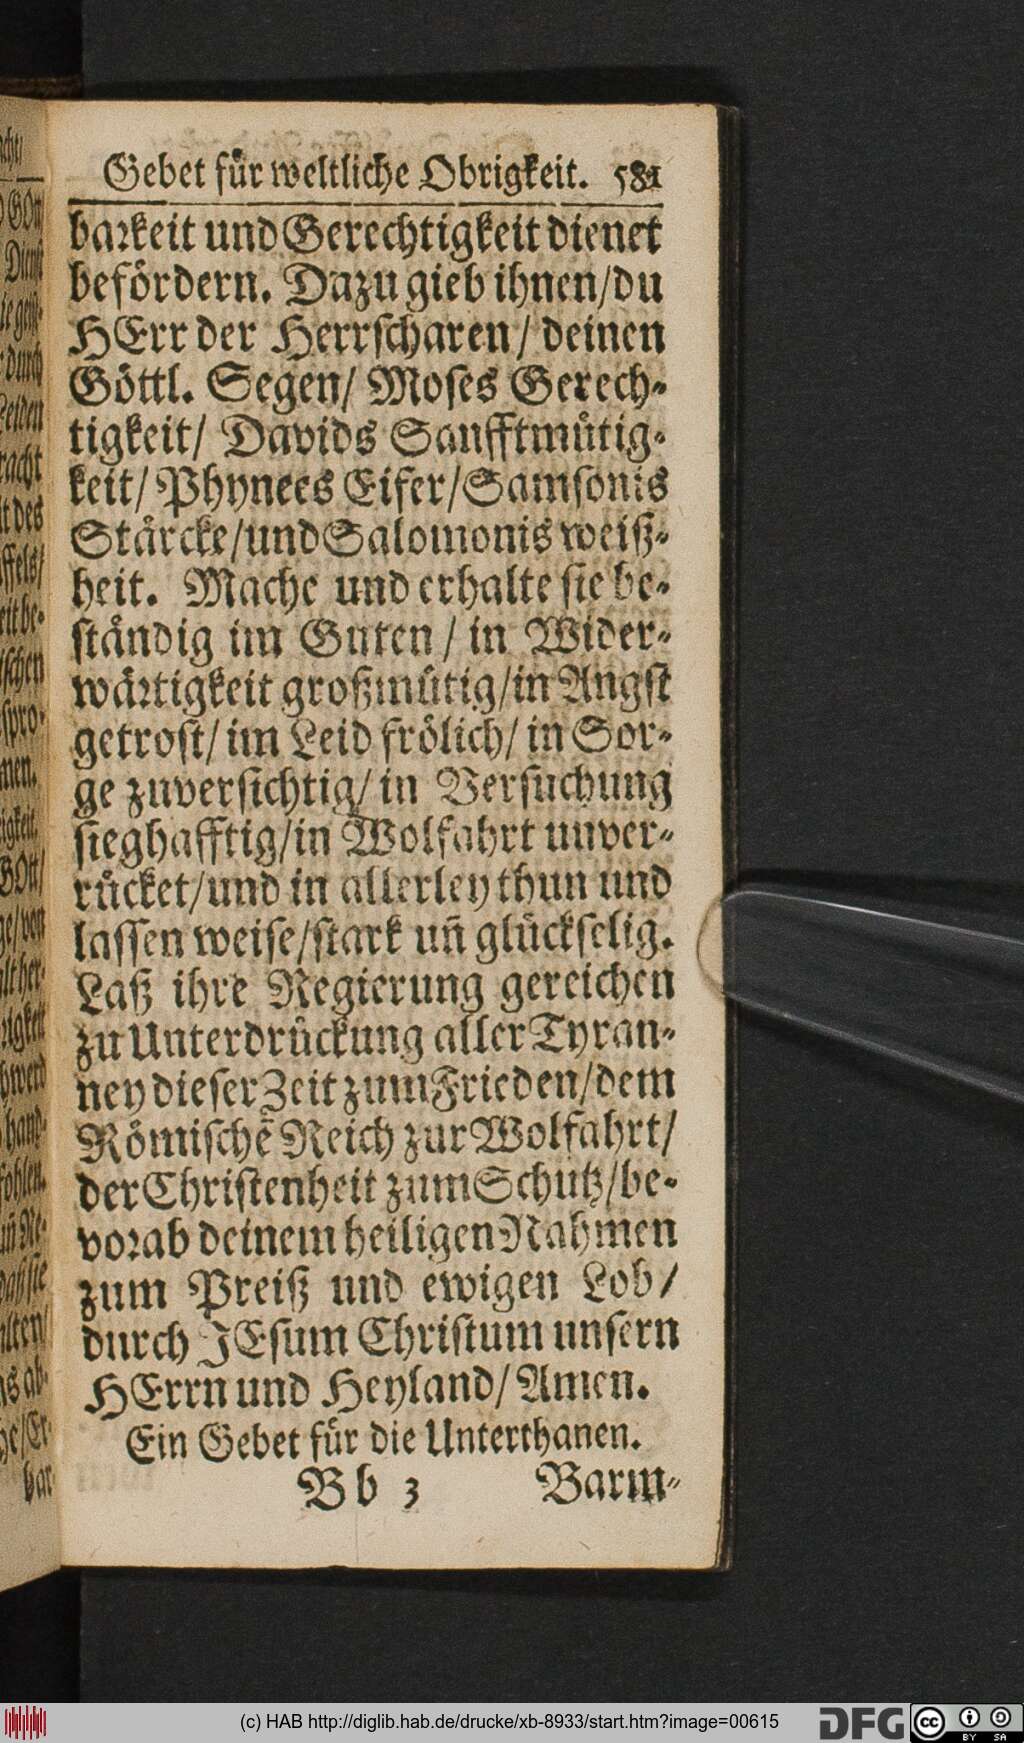 Gebet für weltliche Obrigkeit. 581
barkeit und Gerechtigkeit dienet
befördern. Dazu gieb ihnen/du
HErr der Herrscharen/ deinen
Göttl. Segen/ Moses Gerech-
tigkeit/ Davids Sanfftmütig-
keit/ Phynees Eifer/Samsonis
Stärcke/und Salomonis weiß-
heit. Mache und erhalte sie be-
ständig im Guten / in Wider-
wärtigkeit großmütig/in Angst
getrost/ im Leid frölich/ in Sor-
ge zuversichtig/ in Versuchung
sieghafftig/in Wolfahrt unver-
rücket/und in allerley thun und
lassen weise/stark uñ glückselig.
Laß ihre Regierung gereichen
zu Unterdrückung aller Tyran-
ney dieser Zeit zum Frieden/dem
Römischē Reich zur Wolfahrt/
der Christenheit zum Schutz/be-
vorab deinem heiligen Nahmen
zum Preiß und ewigen Lob/
durch JEsum Christum unsern
HErrn und Heyland/Amen.
Ein Gebet für die Unterthanen.
Bb 3 Barm-
(c) HAB http://diglib.hab.de/drucke/xb-8933/start.htm?image=00615
DFG cc BY SA